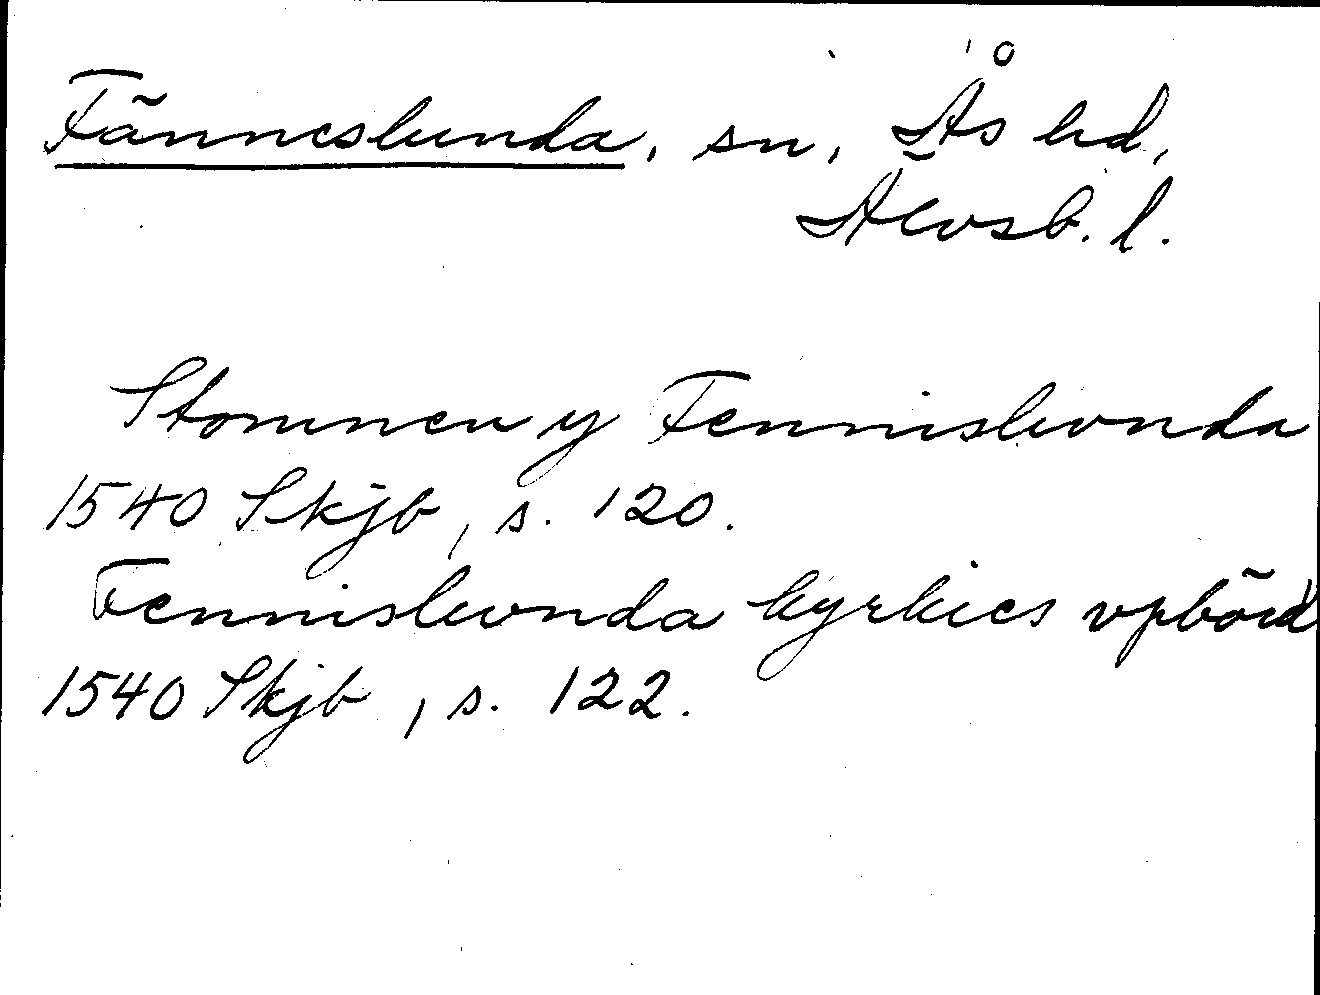 Fänneslunda, sn, Ås hd,
Älvsb. l.
Stommen y Fennislwnda
1540 Skjb, s. 120.
Fennislwnda kyrkies vpbörd
1540 Skjb, s. 122.